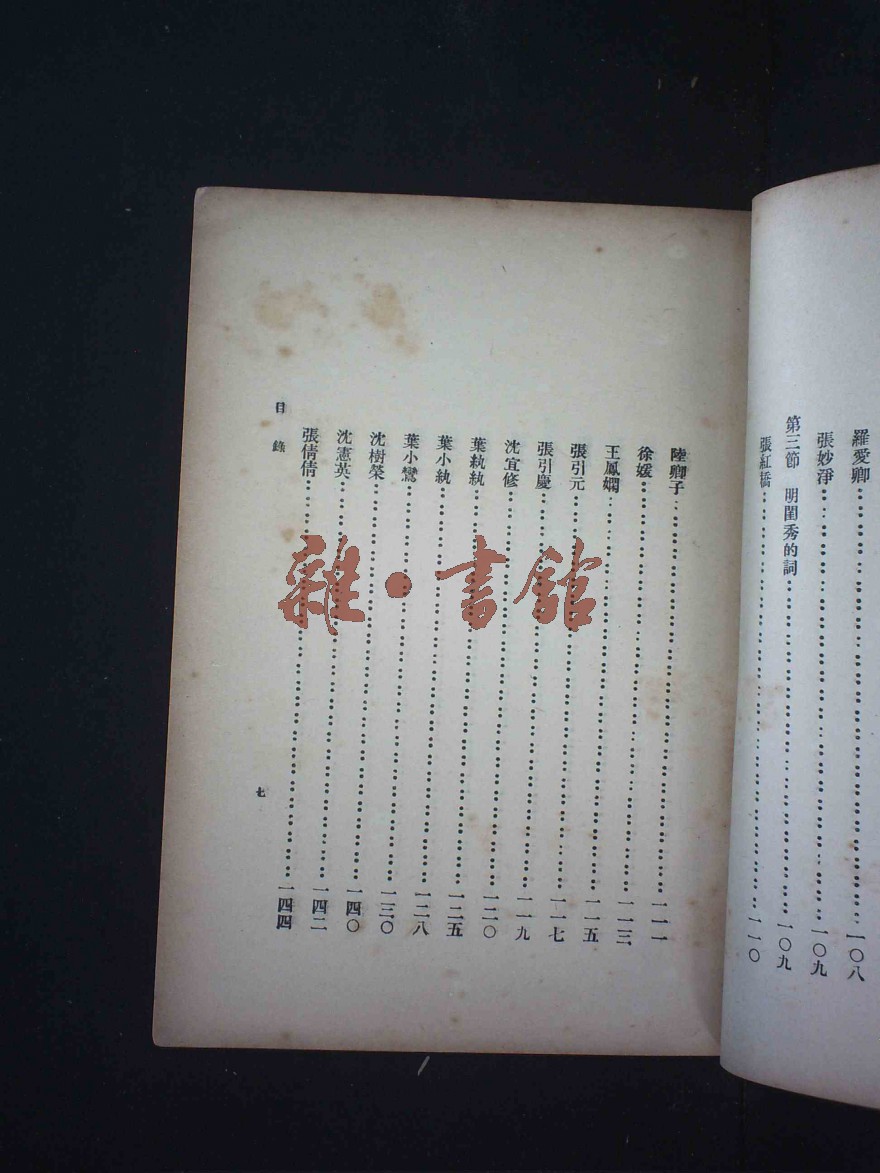 羅愛卿……………………一〇八
張妙淨……………………一〇九
第三節 明閨秀的詞……………………一〇九
張紅橋……………………一一〇
陸卿子……………………一一一
徐媛……………………一一三
王鳳嫻……………………一一五
張引元……………………一一七
張引慶……………………一一九
沈宜修……………………一二〇
葉紈紈……………………一二五
葉小紈……………………一二八
葉小鸞……………………一三〇
沈樹榮……………………一四〇
沈憲英……………………一四二
張倩倩……………………一四四
目錄
七
雜·書館